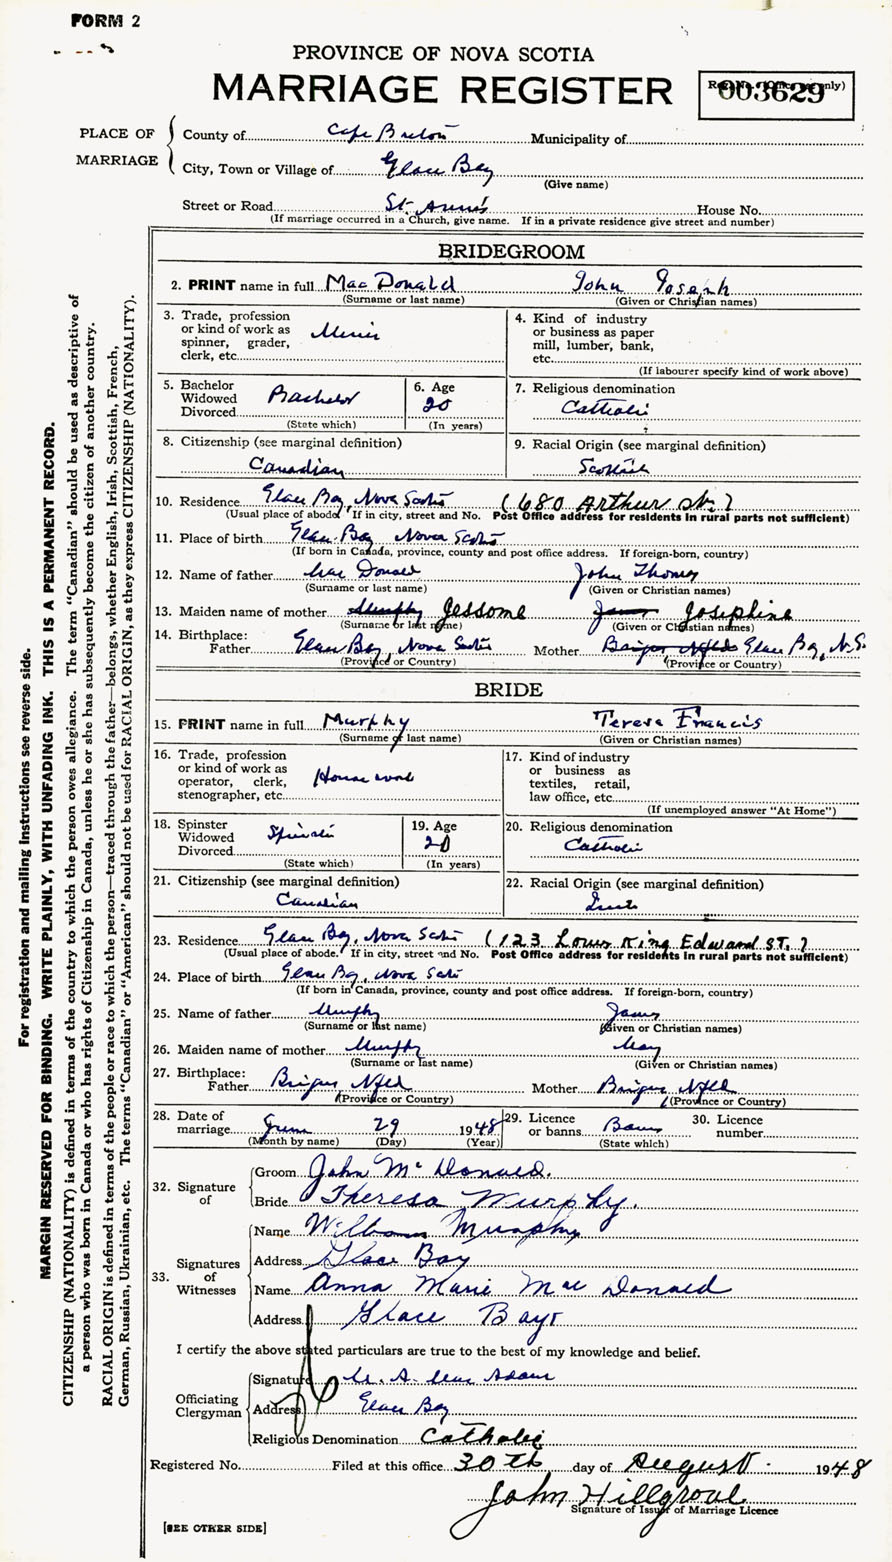 FORM 2
PROVINCE OF NOVA SCOTIA
MARRIAGE REGISTER
Reg. No. (Office use only)
003629
PLACE OF MARRIAGE
County of Cape Breton Municipality of
City, Town or Village of Glace Bay
(Give name)
Street or Road St. Anne's House No.
(If marriage occurred in a Church, give name. If in a private residence give street and number)
BRIDEGROOM
2. PRINT name in full MacDonald John Joseph
(Surname or last name) (Given or Christian names)
3. Trade, profession or kind of work as spinner, grader, clerk, etc. Miner
4. Kind of industry or business as paper mill, lumber, bank, etc.
(If labourer specify kind of work above)
5. Bachelor Widowed Divorced Bachelor
(State which)
6. Age 20
(In years)
7. Religious denomination
Catholic
8. Citizenship (see marginal definition)
Canadian
9. Racial Origin (see marginal definition)
Scottish
10. Residence Glace Bay, Nova Scotia (680 Arthur St.)
(Usual place of abode. If in city, street and No. Post Office address for residents in rural parts not sufficient)
11. Place of birth Glace Bay Nova Scotia
(If born in Canada, province, county and post office address. If foreign-born, country)
12. Name of father Mac Donald John Thomas
(Surname or last name) (Given or Christian names)
13. Maiden name of mother Murphy Jessome James Josephine
(Surname or last name) (Given or Christian names)
14. Birthplace:
Father Glace Bay, Nova Scotia Mother Brigus Nfld Glace Bay, N.S.
(Province or Country) (Province or Country)
BRIDE
15. PRINT name in full Murphy Teresa Francis
(Surname or last name) (Given or Christian names)
16. Trade, profession or kind of work as operator, clerk, stenographer, etc. House work
17. Kind of industry or business as textiles, retail, law office, etc.
(If unemployed answer "At Home")
18. Spinster Widowed Divorced Spinster
(State which)
19. Age 20
(In years)
20. Religious denomination
Catholic
21. Citizenship (see marginal definition)
Canadian
22. Racial Origin (see marginal definition)
Irish
23. Residence Glace Bay, Nova Scotia (123 Lower King Edward ST.)
(Usual place of abode. If in city, street and No. Post Office address for residents in rural parts not sufficient)
24. Place of birth Glace Bay, Nova Scotia
(If born in Canada, province, county and post office address. If foreign-born, country)
25. Name of father Murphy James
(Surname or last name) (Given or Christian names)
26. Maiden name of mother Murphy May
(Surname or last name) (Given or Christian names)
27. Birthplace:
Father Brigus Nfld Mother Brigus Nfld
(Province or Country) (Province or Country)
28. Date of marriage June 29 1948
(Month by name) (Day) (Year)
29. Licence or banns Banns
(State which)
30. Licence number
32. Signature of
Groom John McDonald.
Bride Theresa Murphy.
33. Signatures of Witnesses
Name William Murphy
Address Glace Bay
Name Anna Marie Mac Donald
Address Glace Bay
I certify the above stated particulars are true to the best of my knowledge and belief.
Officiating Clergyman
Signature M. A. Mac Adam
Address Glace Bay
Religious Denomination Catholic
Registered No. Filed at this office 30th day of August 1948
John Hillgrove
Signature of Issuer of Marriage Licence
[SEE OTHER SIDE]
For registration and mailing instructions see reverse side.
MARGIN RESERVED FOR BINDING. WRITE PLAINLY, WITH UNFADING INK. THIS IS A PERMANENT RECORD.
CITIZENSHIP (NATIONALITY) is defined in terms of the country to which the person owes allegiance. The term "Canadian" should be used as descriptive of
a person who was born in Canada or who has rights of Citizenship in Canada, unless he or she has subsequently become the citizen of another country.
RACIAL ORIGIN is defined in terms of the people or race to which the person—traced through the father—belongs, whether English, Irish, Scottish, French,
German, Russian, Ukrainian, etc. The terms "Canadian" or "American" should not be used for RACIAL ORIGIN, as they express CITIZENSHIP (NATIONALITY).